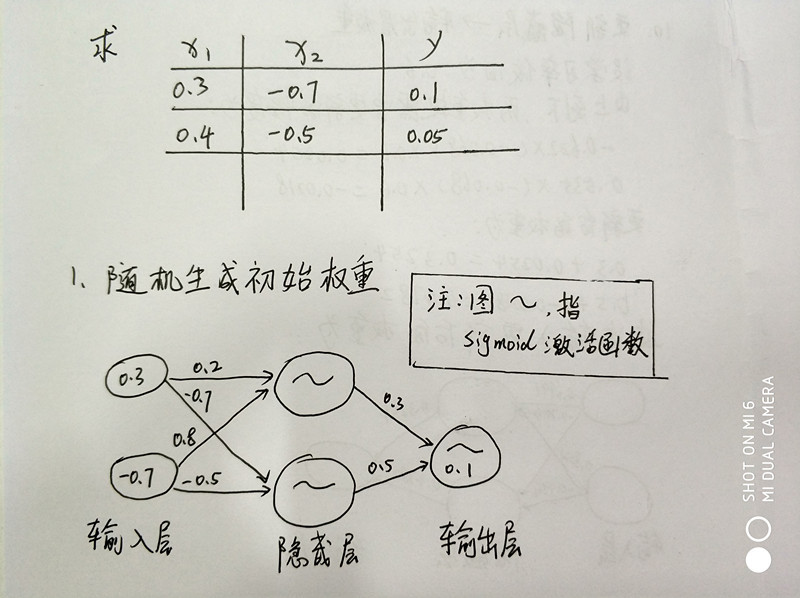 求
x₁ x₂ y
0.3 -0.7 0.1
0.4 -0.5 0.05
1、随机生成初始权重
注:图 ~,指
sigmoid 激活函数
0.3 0.2 ~
-0.7 0.3
0.8 ~
0.1
-0.7 -0.5 ~ 0.5
输入层 隐藏层 输出层
SHOT ON MI 6
MI DUAL CAMERA